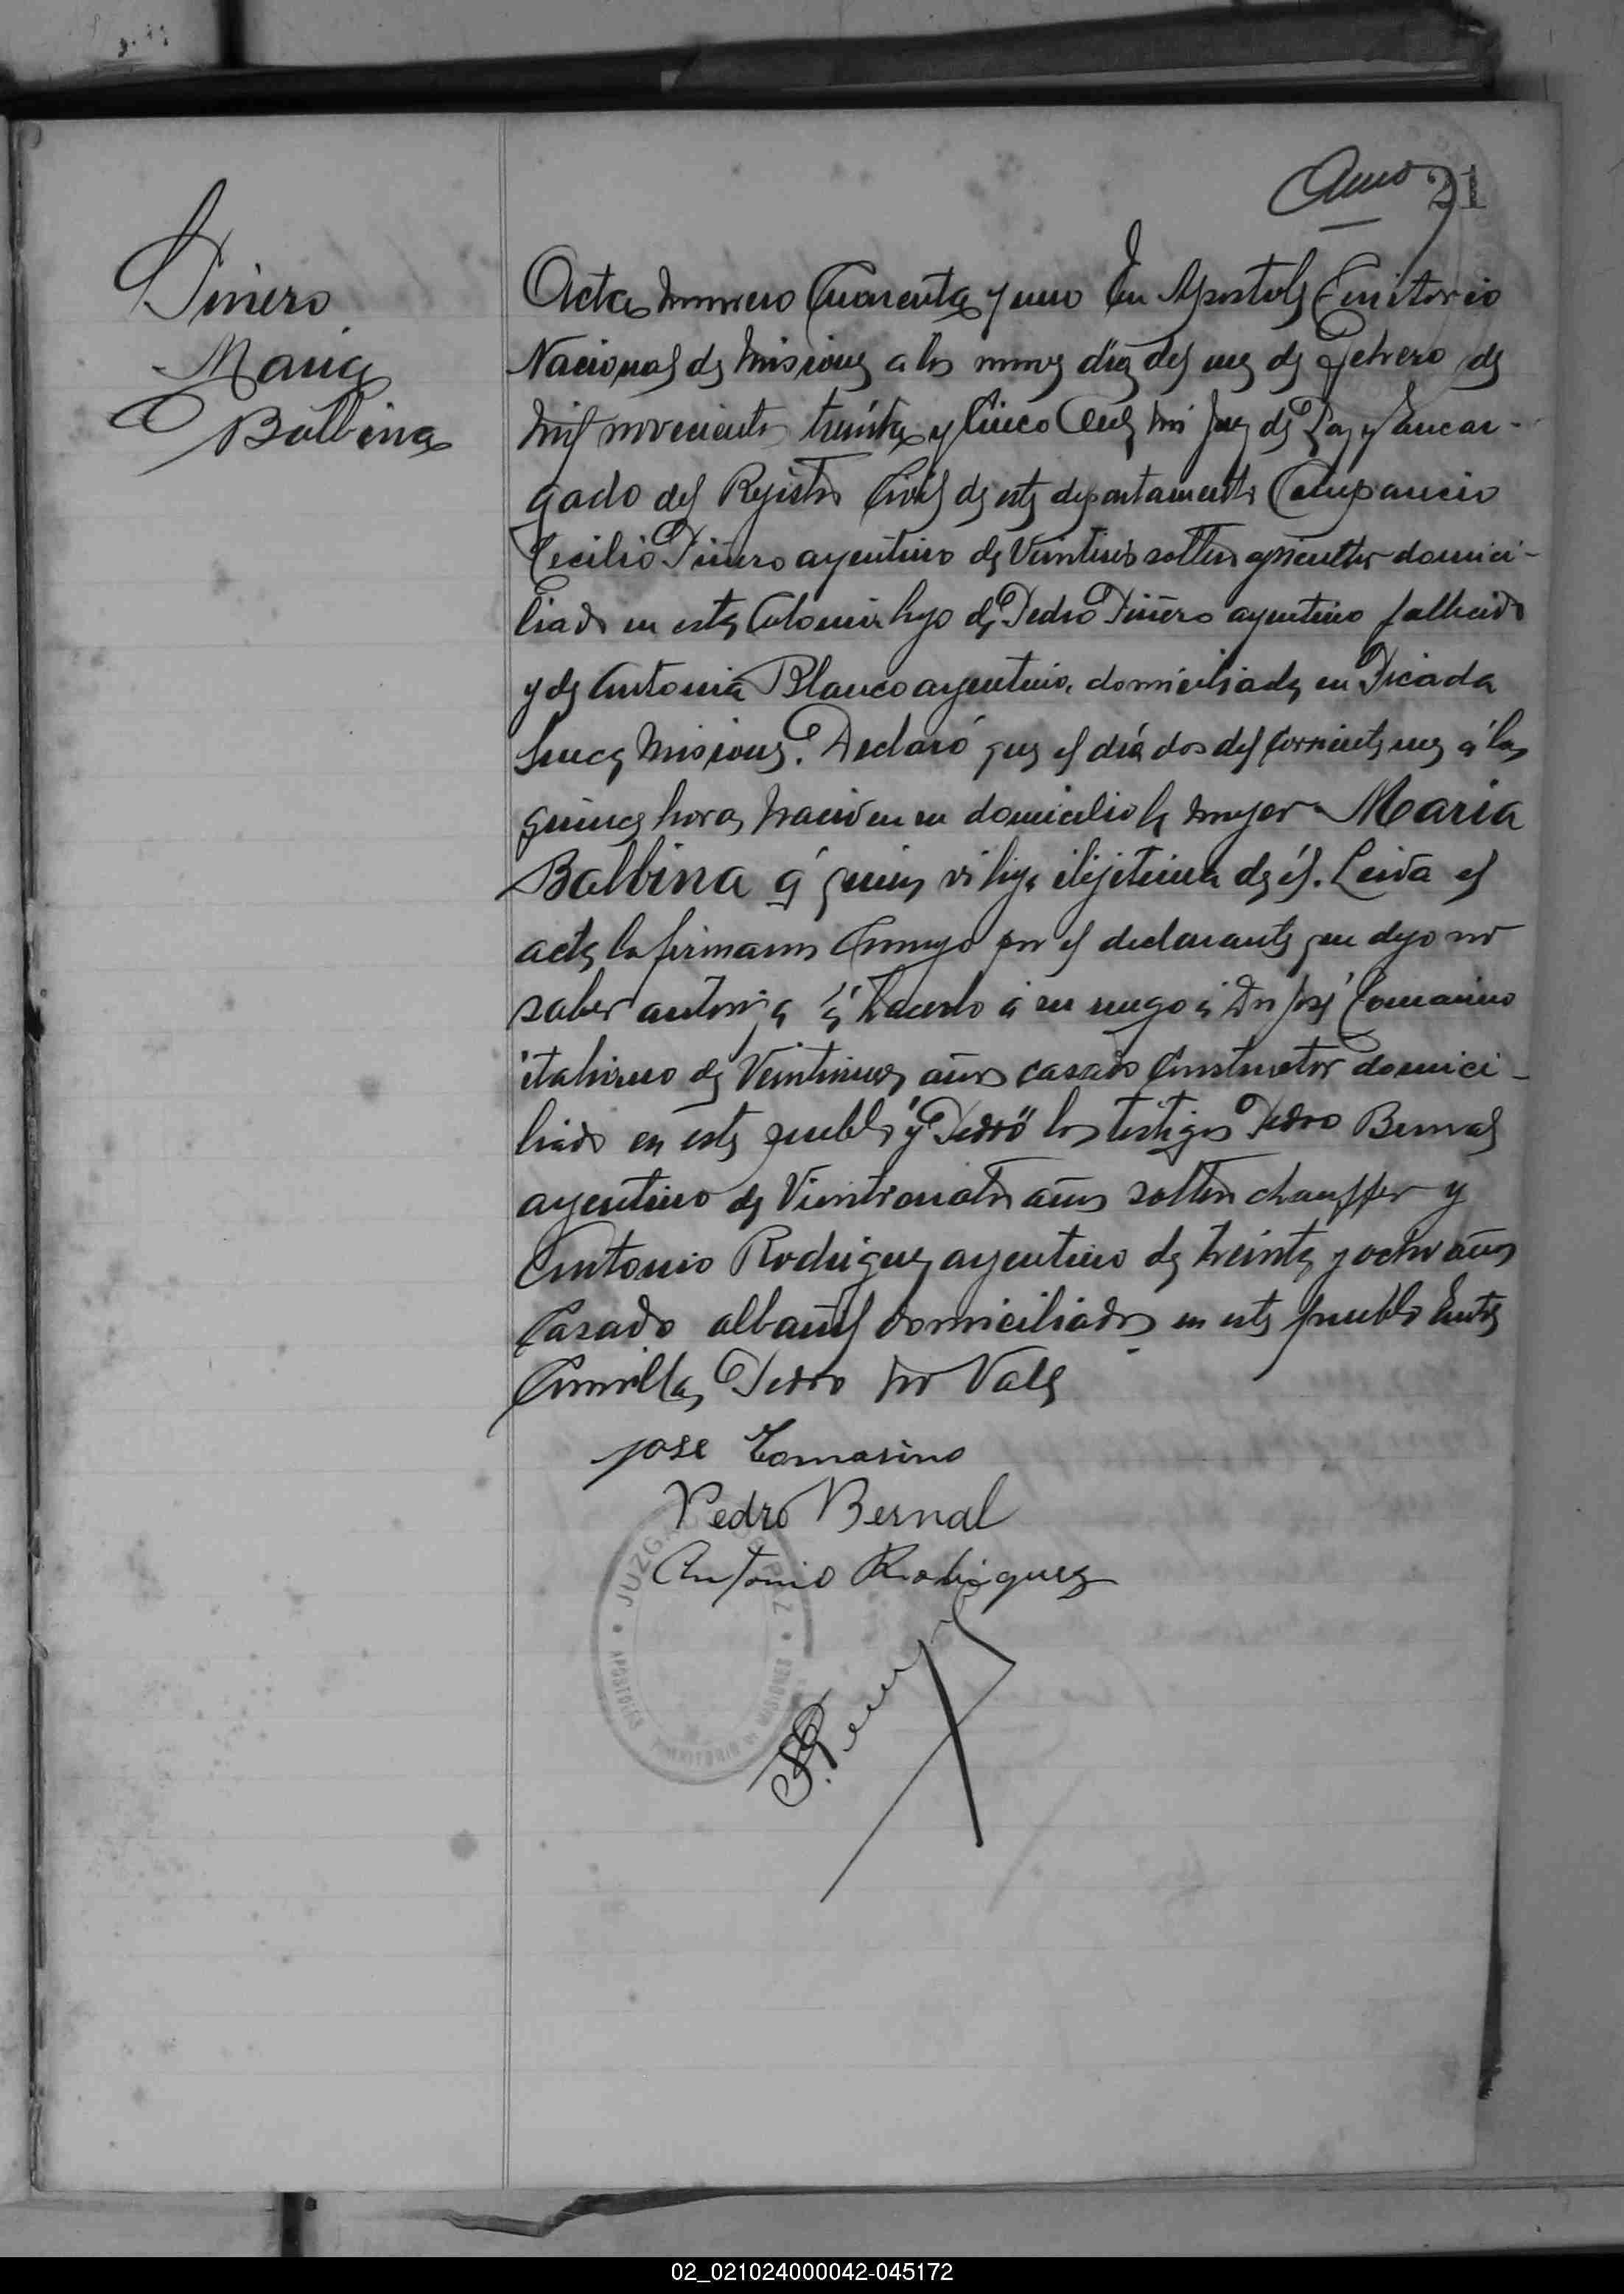 Piñero
Maria
Balbina
21
Acta numero Cuarenta y uno En Apostoles Territorio
Nacional de Misiones a los nueve dias del mes de Febrero de
mil novecientos treinta y Cinco Ante mi Juez de Paz y Encar-
gado del Registro Civil de este departamento Compareció
Cecilio Piñero argentino de soltero agricultor domici-
liado en esta Colonia hijo de Pedro Piñero argentino fallecido
y de Antonia Blanco argentina domiciliada en Picada
Misiones. Declaró que el día dos del corriente mes á las
quince horas nació en su domicilio la mujer Maria
Balbina á quien hija ilejitima de él. Leida el
acta la firmaron Conmigo por el declarante que dijo no
saber autoriza á hacerlo á su ruego á Don José Tomasino
italiano de Veintinueve años casado Constructor domici-
liado en este pueblo y "Pedro" los testigos Pedro Bernal
argentino de Veinticuatro años soltero chauffer y
Antonio Rodriguez argentino de treinta y ocho años
Casado albañil domiciliados en este pueblo Entre
Comillas Pedro No Vale
Jose Tomasino
Pedro Bernal
Antonio Rodriguez
JUZGADO DE PAZ
APOSTOLES TERRITORIO DE MISIONES
02_021024000042-045172